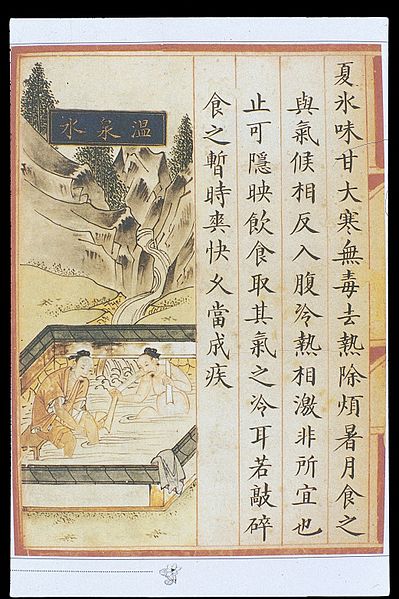 夏氷味甘大寒無毒去熱除煩暑月食之
與氣候相反入腹冷熱相激非所宜也
止可隱映飲食取其氣之冷耳若敲碎
食之暫時爽快久當成疾
溫泉水